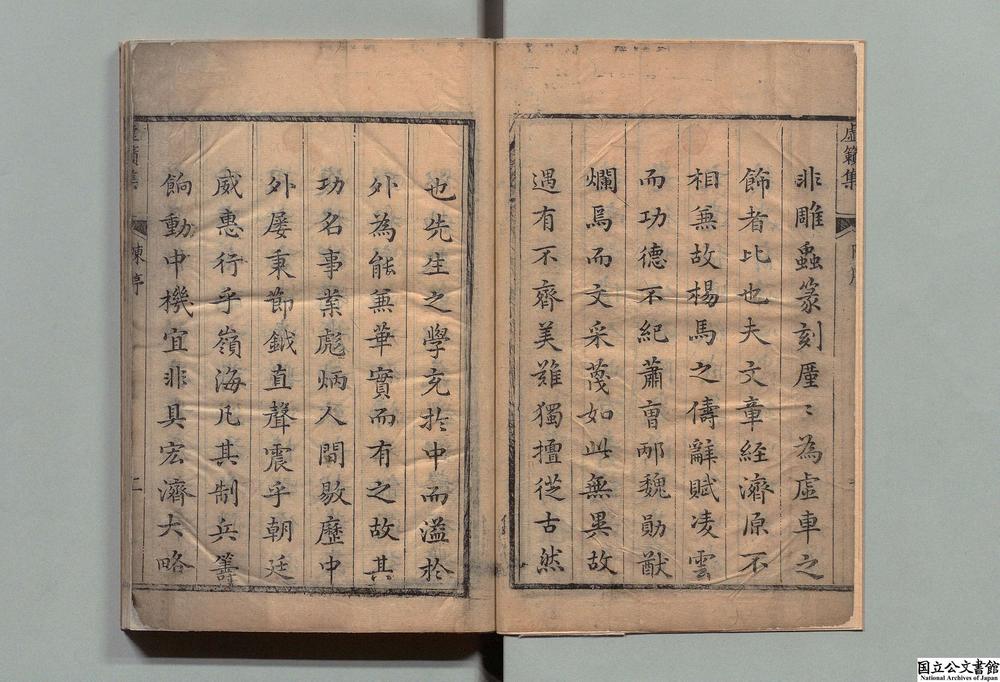 虛籟集
非雕蟲篆刻厪〻為虛車之
飾者比也夫文章經濟原不
相兼故楊馬之儔辭賦凌雲
而功德不紀蕭曺邴魏勛猷
爛焉而文采蔑如此無異故
遇有不齊美難獨擅從古然
也先生之學充扵中而溢扵
外為能兼華實而有之故其
功名事業彪炳人間敭歷中
外屡秉節鉞直聲震乎朝廷
威惠行乎嶺海凡其制兵籌
餉動中機宜非具宏濟大略
陳序
二
国立公文書館
National Archives of Japan